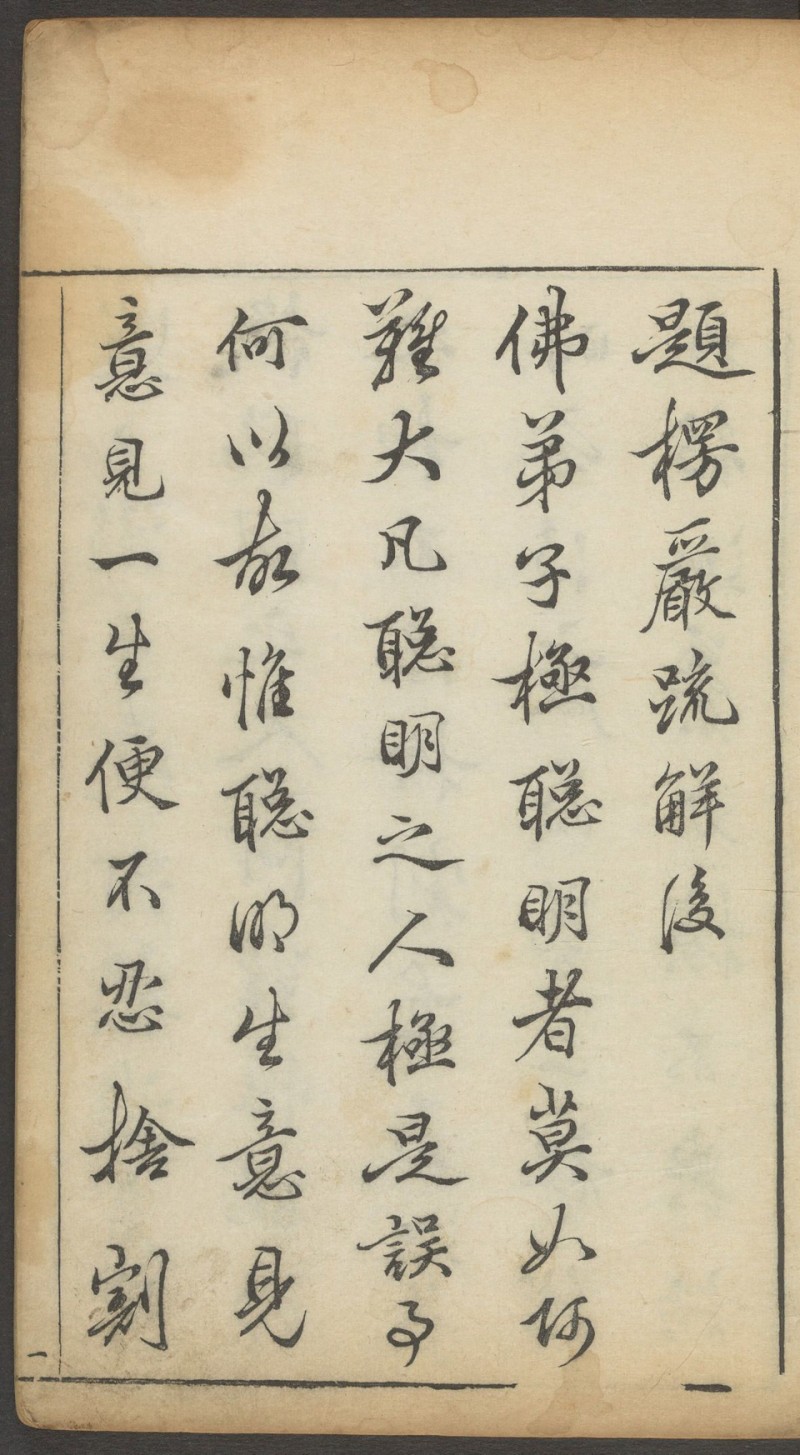 題楞嚴疏解後
佛弟子極聰明者莫如阿
難大凡聰明之人極是誤事
何以故惟聰明生意見
意見一生便不忍捨割
一